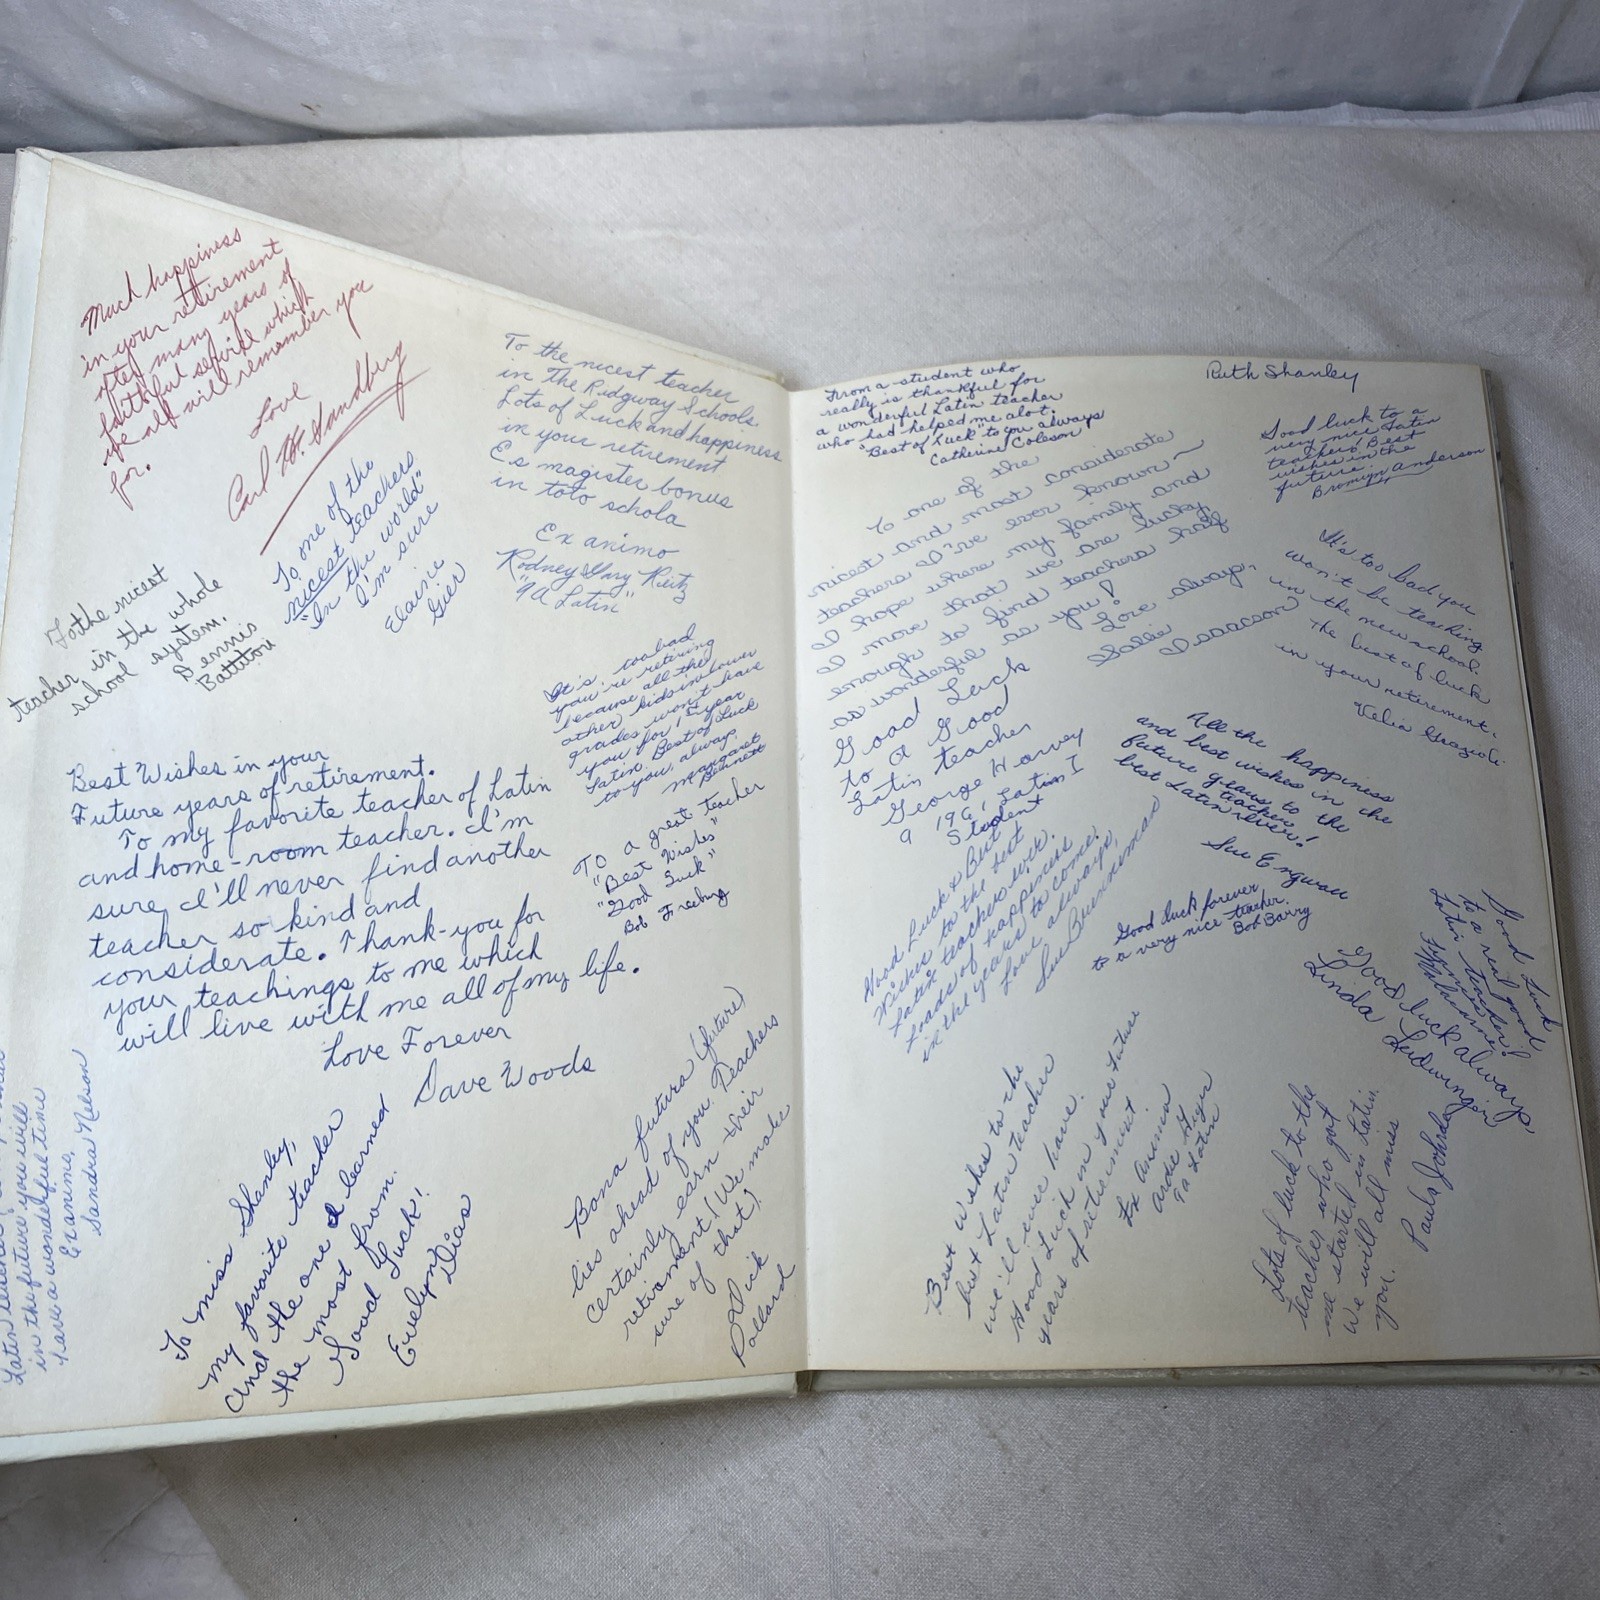 Much happiness
in your retirement
after many years of
faithful service which
we all will remember you
for.
Love
Carl W. Sandberg
To the nicest
teacher in the whole
school system.
Dennis
Battitori
To one of the
nicest teachers
"In the world"
I'm sure
Elaine
Gier
To the nicest teacher
in The Ridgway Schools
Lots of Luck and happiness
in your retirement
Es magister bonus
in toto schola
Ex animo
Rodney Gary Reitz
"9A Latin"
It's too bad
you're retiring
because all the
other kids in lower
grades won't have
you for 1st year
Latin. Best of Luck
to you, always,
Margaret
Bennett
Best Wishes in your
Future years of retirement.
To my favorite teacher of Latin
and home-room teacher. I'm
sure I'll never find another
teacher so kind and
considerate. Thank-you for
your teachings to me which
will live with me all of my life.
Love Forever
Dave Woods
To a great Teacher
"Best Wishes"
"Good Luck"
Bob Freeburg
Latin teacher
in the future you will
have a wonderful time
Ex animo,
Sandra Nelson
To Miss Shanley,
my favorite teacher
and the one I learned
the most from.
Good Luck!
Evelyn Dias
Bona futura (future)
lies ahead of you. Teachers
certainly earn their
retirement (We make
sure of that)
Dick
Pollard
From a student who
really is thankful for
a wonderful Latin teacher
who had helped me alot.
"Best of Luck" to you always
Catherine Coleson
Ruth Shanley
Good luck to a
very nice Latin
teacher! Best
wishes in the
future.
Bronwyn Anderson
To one of the
nicest and most considerate
teachers I've ever known ~
I hope where my family and
I move that we are lucky
enough to find teachers half
as wonderful as you!
Love always,
Sallie
Isaacson
It's too bad you
won't be teaching
in the new school.
The best of luck
in your retirement.
Velia Grazioli
Good Luck
to a Good
Latin teacher
George Harvey
9 196' Latin I
Student
All the happiness
and best wishes in the
future years to the
best Latin teacher
ever!
Sue Engwall
Good Luck & Best
Wishes to the best
Latin teacher ever.
Loads of happiness
in the years to come.
Love always,
Sue
Good luck forever
to a very nice teacher.
Bob Barry
Good Luck
to a real good
Latin teacher!
Good luck always,
Linda
Best Wishes to the
best Latin teacher
we'll ever have.
Good Luck in your future
years of retirement
Ex animo
9a Latin
Lots of luck to the
teacher who got
me started in Latin.
We will all miss
you.
Paula